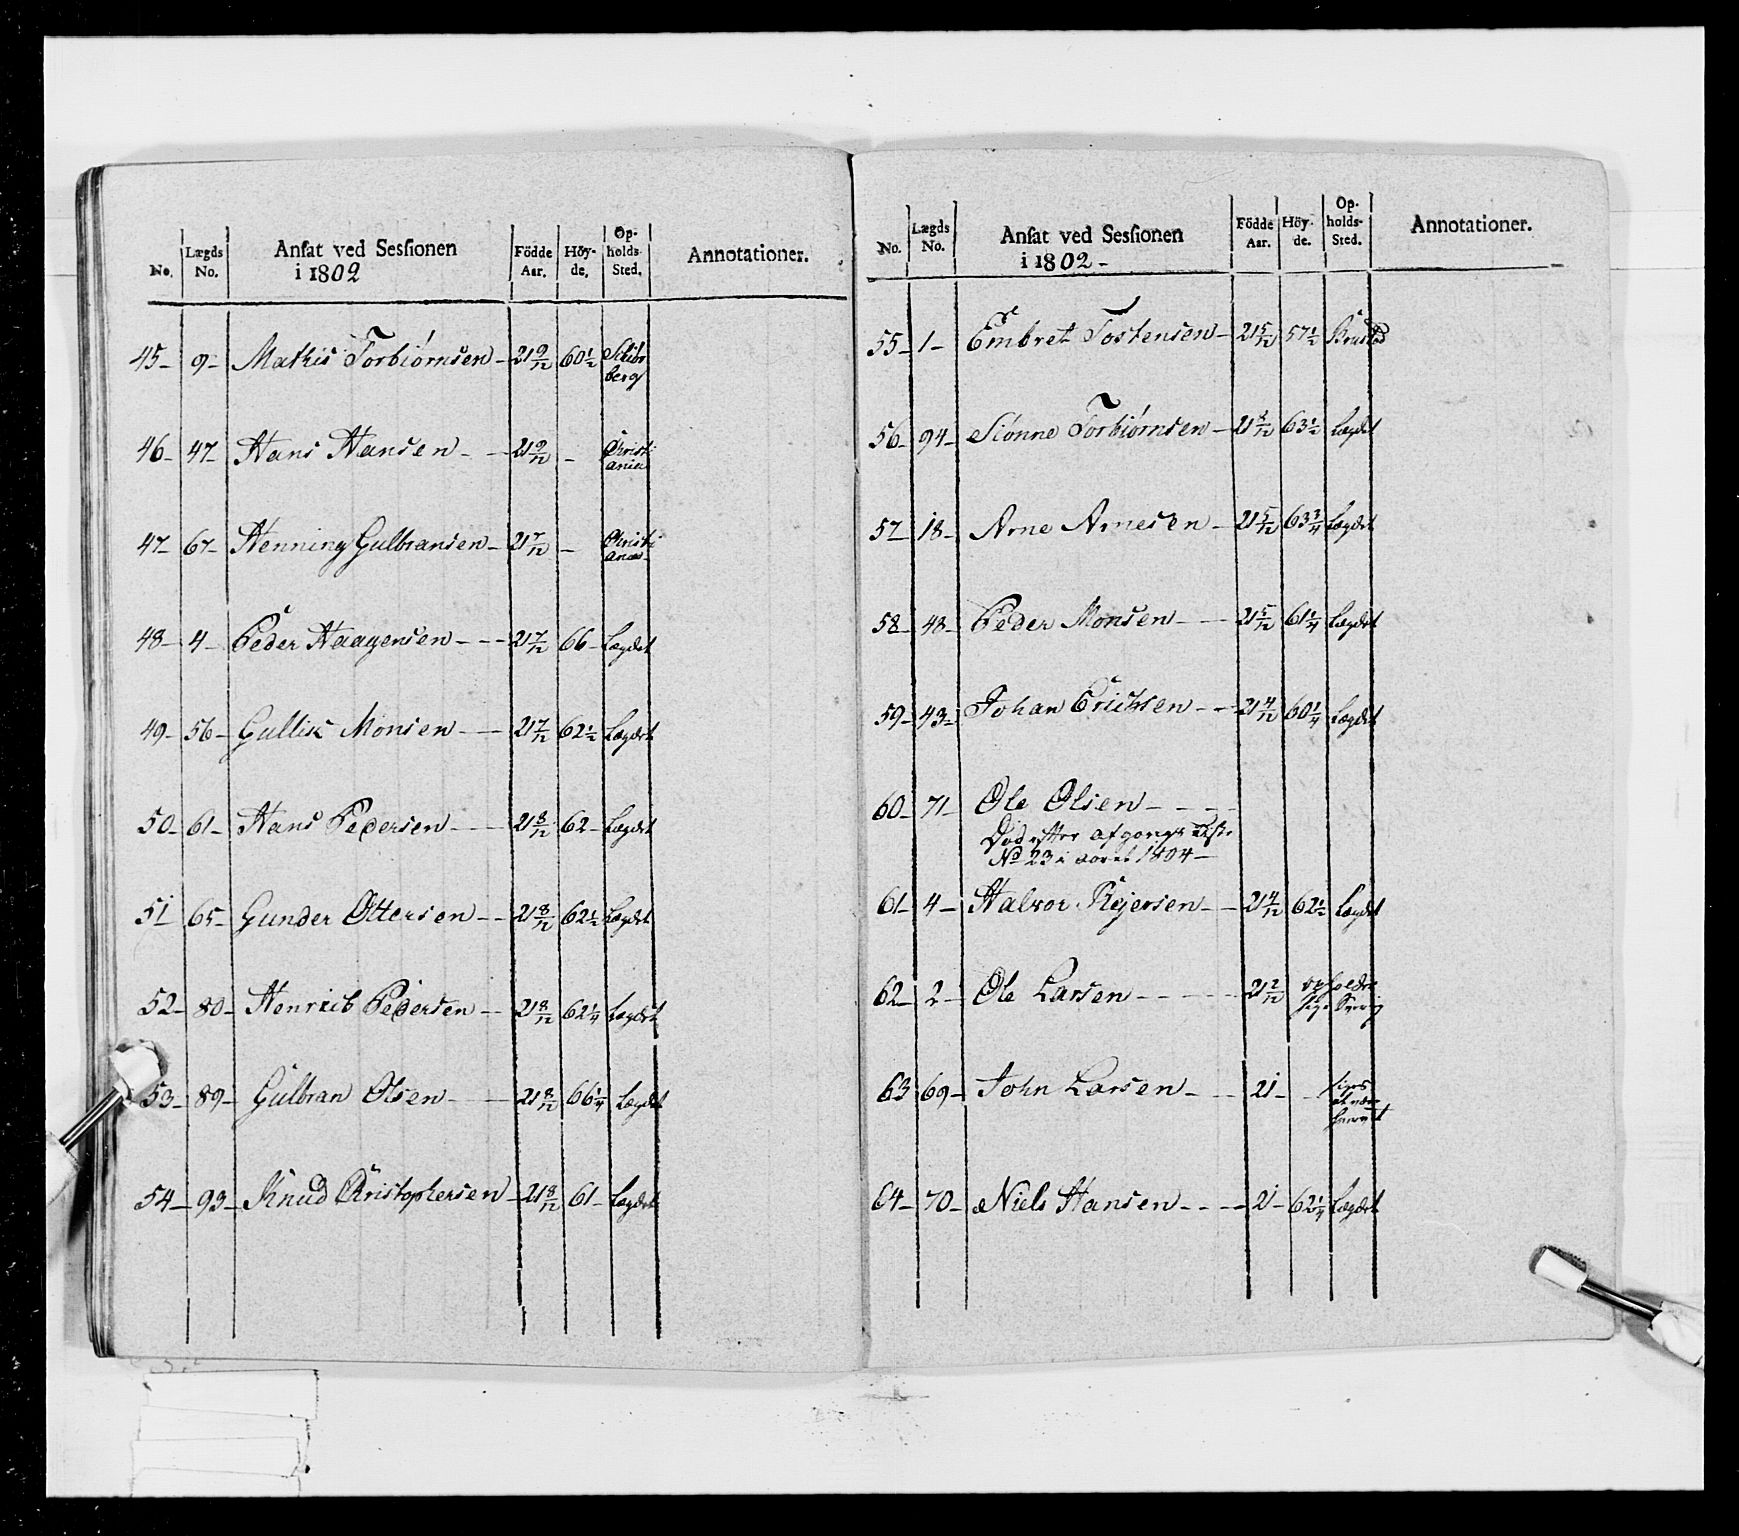 No. Lægds No. Ansat ved Sessionen i 1802 Födde Aar. Höy-de. Op-holds-Sted. Annotationer.
45 - 9 - Mathis Torbiørnsen - 21 9/12 60 1/2
berg
46 - 47 - Hans Hansen - - 21 9/12 - Christi
ania
47 - 67 - Henning Gulbransen - 21 7/12 - Christi
ania
48 - 4 - Peder Haagensen - - - 21 7/12 66 - Lægdet
49 - 56 - Gullik Monsen - - 21 7/12 62 1/2 Lægdet
50 - 61 - Hans Pedersen - - - 21 8/12 62 - Lægdet
51 65 - Gunder Ottersen - - 21 8/12 62 1/2 Lægdet
52 - 80 - Henrich Pedersen - - 21 8/12 62 1/4 Lægdet
53 - 89 - Gulbran Olsen - - 21 8/12 66 1/4 Lægdet
54 - 93 - Knud Christophersen - 21 8/12 61 - Lægdet
No. Lægds No. Ansat ved Sessionen i 1802 - Födde Aar. Höy-de. Op-holds-Sted. Annotationer.
55 - 1 - Embret Tostensen - 21 5/12 57 1/2
56 - 94 - Siønne Torbiørnsen - 21 8/12 63 1/2 Lægdet
57 18 - Arne Arnesen - 21 5/12 63 3/4 Lægdet
58 - 48 - Peder Monsen - - 21 5/12 61 1/4 Lægdet
59 - 43 - Johan Erichsen - - 21 4/12 60 1/4 Lægdet
60 - 71 - Ole Olsen - - - -
Død efter afgangs Liste
No 23 i aaret 1804 -
61 - 4 - Halvor Rejersen - - 21 4/12 62 1/2 Lægdet
62 - 2 - Ole Larsen - - - - 21 2/12
63 69 - John Larsen - - - 21 - -
64 - 70 - Niels Hansen - - - - 21 - 62 1/4 Lægdet